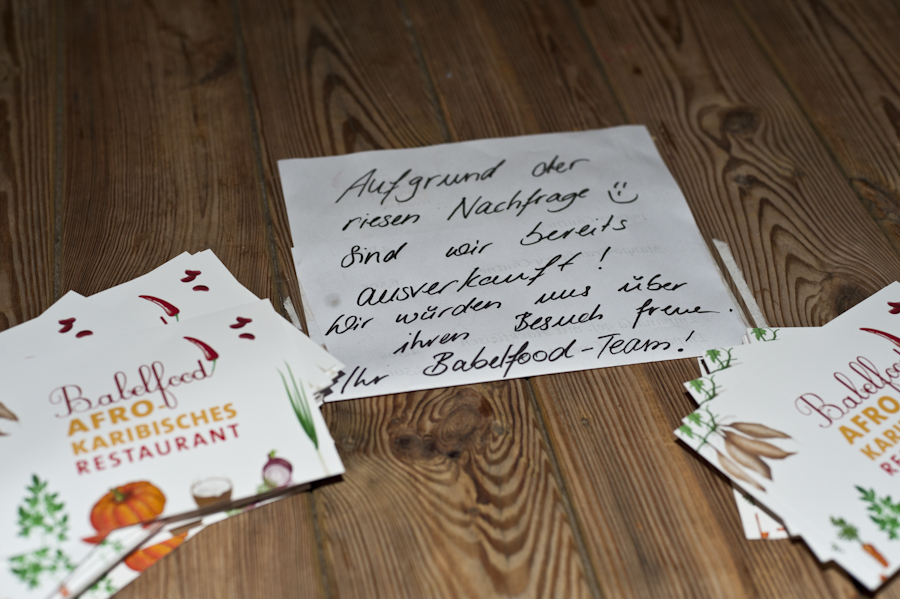 Aufgrund der
riesen Nachfrage
sind wir bereits
ausverkauft!
Wir würden uns über
ihren Besuch freue.
Ihr Babelfood-Team!
Babelfood
AFRO-
KARIBISCHES
RESTAURANT
Babelfood
AFRO-
KARIB
RE